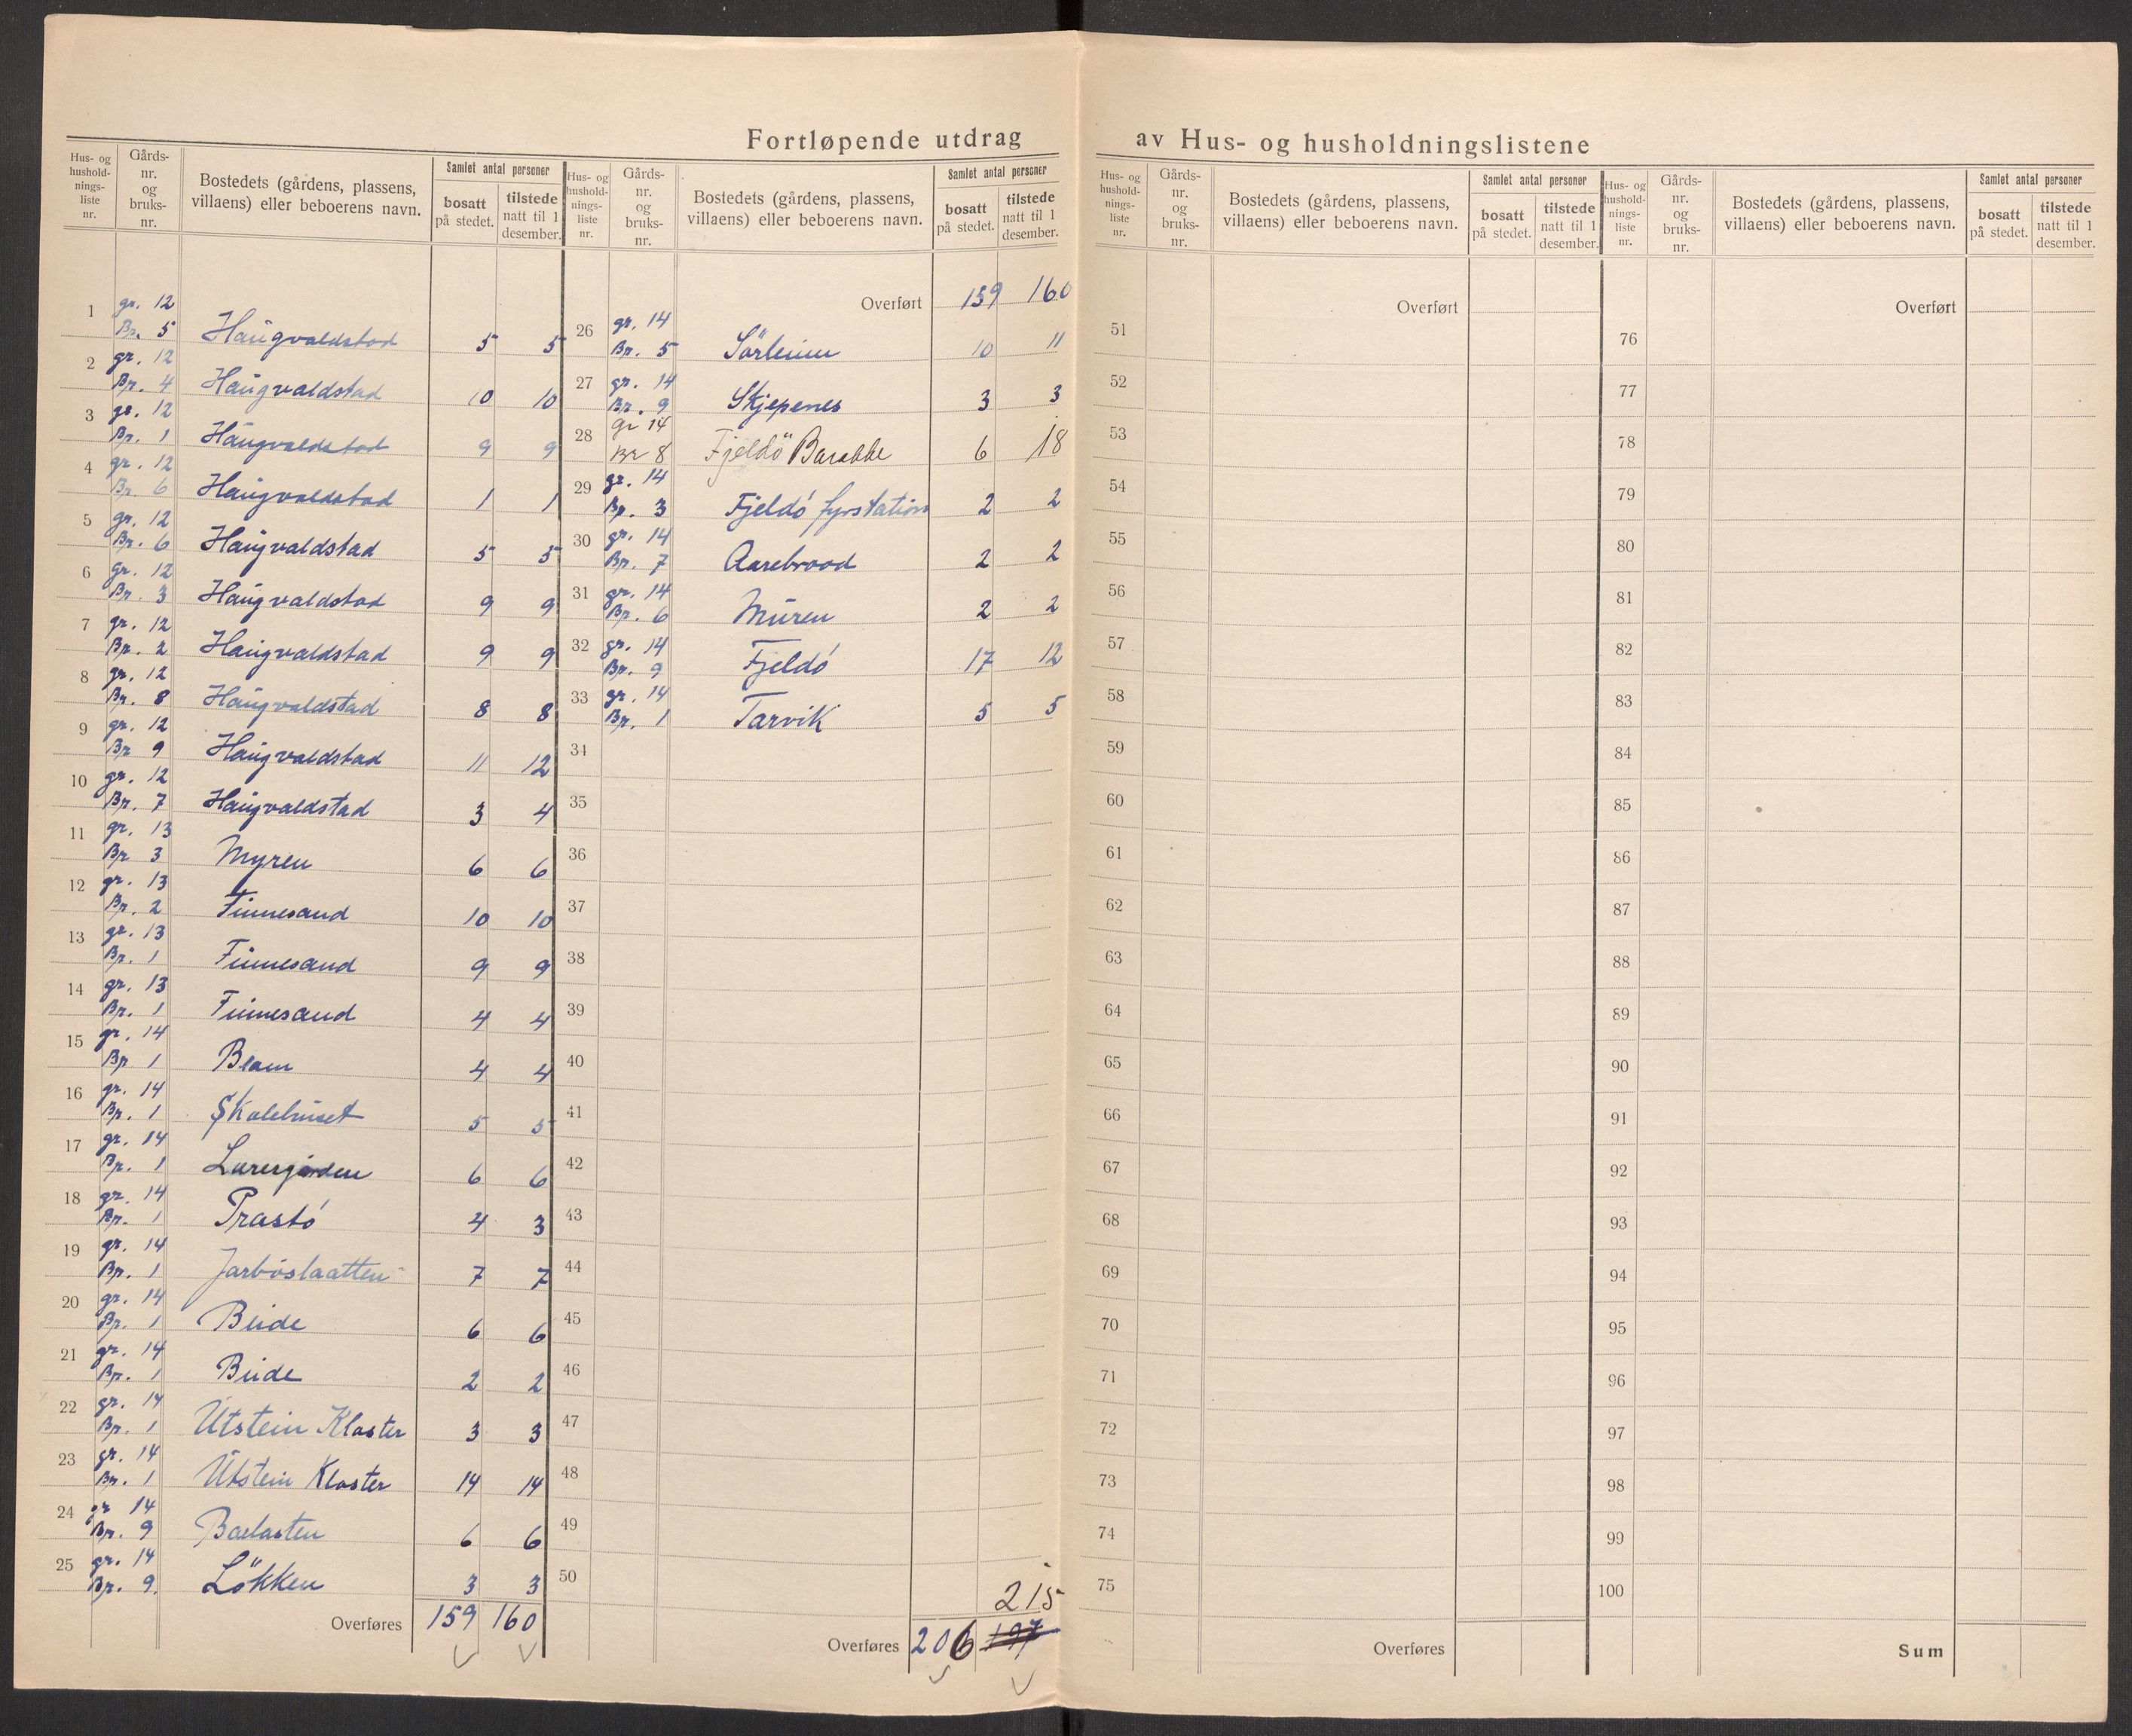 Fortløpende utdrag av Hus- og husholdningslistene
Hus- og husholdningsliste nr. | Gårdsnr. og bruksnr. | Bostedets (gårdens, plassens, villaens) eller beboerens navn. | Samlet antal personer bosatt på stedet. | tilstede natt til 1 desember.
1 gr. 12 Br. 5 Haugvaldstad 5 5
2 gr. 12 Br. 4 Haugvaldstad 10 10
3 gr. 12 Br. 1 Haugvaldstad 9 9
4 gr. 12 Br. 6 Haugvaldstad 1 1
5 gr. 12 Br. 6 Haugvaldstad 5 5
6 gr. 12 Br. 3 Haugvaldstad 9 9
7 gr. 12 Br. 2 Haugvaldstad 9 9
8 gr. 12 Br. 8 Haugvaldstad 8 8
9 gr. 12 Br 9 Haugvaldstad 11 12
10 gr. 12 Br. 7 Haugvaldstad 3 4
11 gr. 13 Br 3 Myren 6 6
12 gr. 13 Br. 2 Finnesand 10 10
13 gr. 13 Br. 1 Finnesand 9 9
14 gr. 13 Br. 1 Finnesand 4 4
15 gr. 14 Br 1 4 4
16 gr. 14 Br. 1 Skolehuset 5 5
17 gr. 14 Br. 1 6 6
18 gr. 14 Br. 1 Prastó 4 3
19 gr. 14 Br. 1 7 7
20 gr. 14 Br. 1 6 6
21 gr. 14 Br. 1 2 2
22 gr. 14 Br. 1 Utstein Kloster 3 3
23 gr. 14 Br. 1 Utstein Kloster 14 14
24 gr 14 Br. 9 6 6
25 gr. 14 Br. 9. Lökken 3 3
Overføres 159 160
Hus- og husholdningsliste nr. | Gårdsnr. og bruksnr. | Bostedets (gårdens, plassens, villaens) eller beboerens navn. | Samlet antal personer bosatt på stedet. | tilstede natt til 1 desember.
Overført 159 160
26 gr. 14 Br. 5 Sörheim 10 11
27 gr. 14 Br. 9 Skjepenes 3 3
28 Gr 14 Br 8 Fjeldö Barakke 6 18
29 gr. 14 Br. 3 Fjeldó fyrstation 2 2
30 gr. 14 Br. 7 Aarebrood 2 2
31 gr. 14 Br. 6 Muren 2 2
32 gr. 14 Br. 9 Fjeldó 17 12
33 gr. 14 Br. 1 Tarvik 5 5
34
35
36
37
38
39
40
41
42
43
44
45
46
47
48
49
50
215
Overføres 206 197
Hus- og husholdningsliste nr. | Gårdsnr. og bruksnr. | Bostedets (gårdens, plassens, villaens) eller beboerens navn. | Samlet antal personer bosatt på stedet. | tilstede natt til 1 desember.
Overført
51
52
53
54
55
56
57
58
59
60
61
62
63
64
65
66
67
68
69
70
71
72
73
74
75
Overføres
Hus- og husholdningsliste nr. | Gårdsnr. og bruksnr. | Bostedets (gårdens, plassens, villaens) eller beboerens navn. | Samlet antal personer bosatt på stedet. | tilstede natt til 1 desember.
Overført
76
77
78
79
80
81
82
83
84
85
86
87
88
89
90
91
92
93
94
95
96
97
98
99
100
Sum